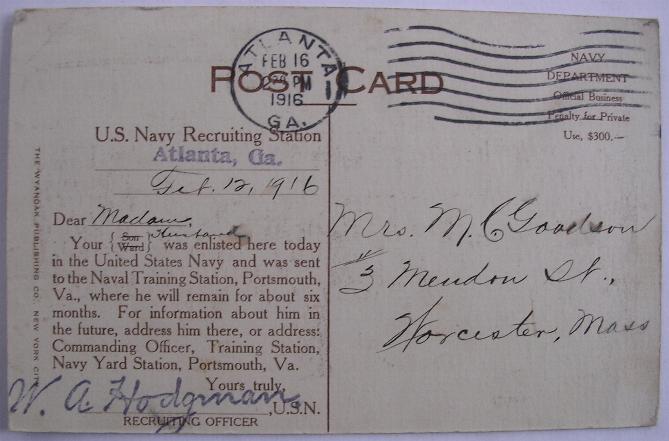 POST CARD
ATLANTA
FEB 16
PM
1916
GA.
NAVY
DEPARTMENT
Official Business
Penalty for Private
Use, $300.—
U.S. Navy Recruiting Station
Atlanta, Ga.
Feb. 12, 1916
Dear Madam,
Your { Son Ward } Husband was enlisted here today
in the United States Navy and was sent
to the Naval Training Station, Portsmouth,
Va., where he will remain for about six
months. For information about him in
the future, address him there, or address:
Commanding Officer, Training Station,
Navy Yard Station, Portsmouth, Va.
Yours truly,
W. A Hodgman
,U.S.N.
RECRUITING OFFICER
THE WYANOAK PUBLISHING CO. NEW YORK CITY
Mrs. M. C Goodson
3 Mendon St.,
Worcester, Mass